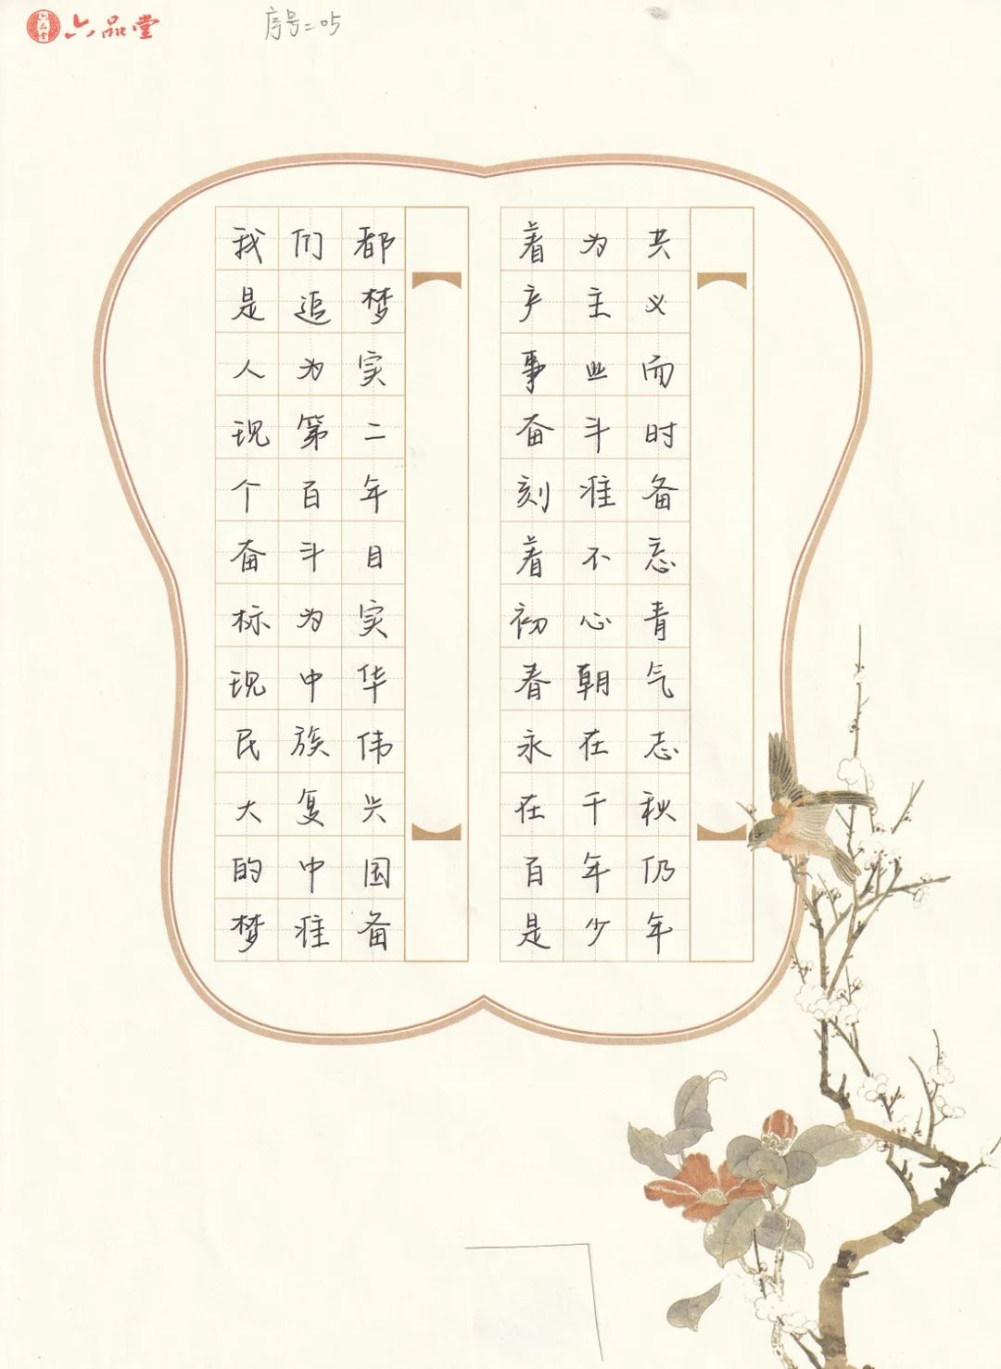 六品堂
序号=05
我们都
是追梦
人为实
现第二
个百年
奋斗目
标为实
现中华
民族伟
大复兴
的中国
梦准备
着为共
产主义
事业而
奋斗时
刻准备
着不忘
初心青
春朝气
永在志
在千秋
百年仍
是少年